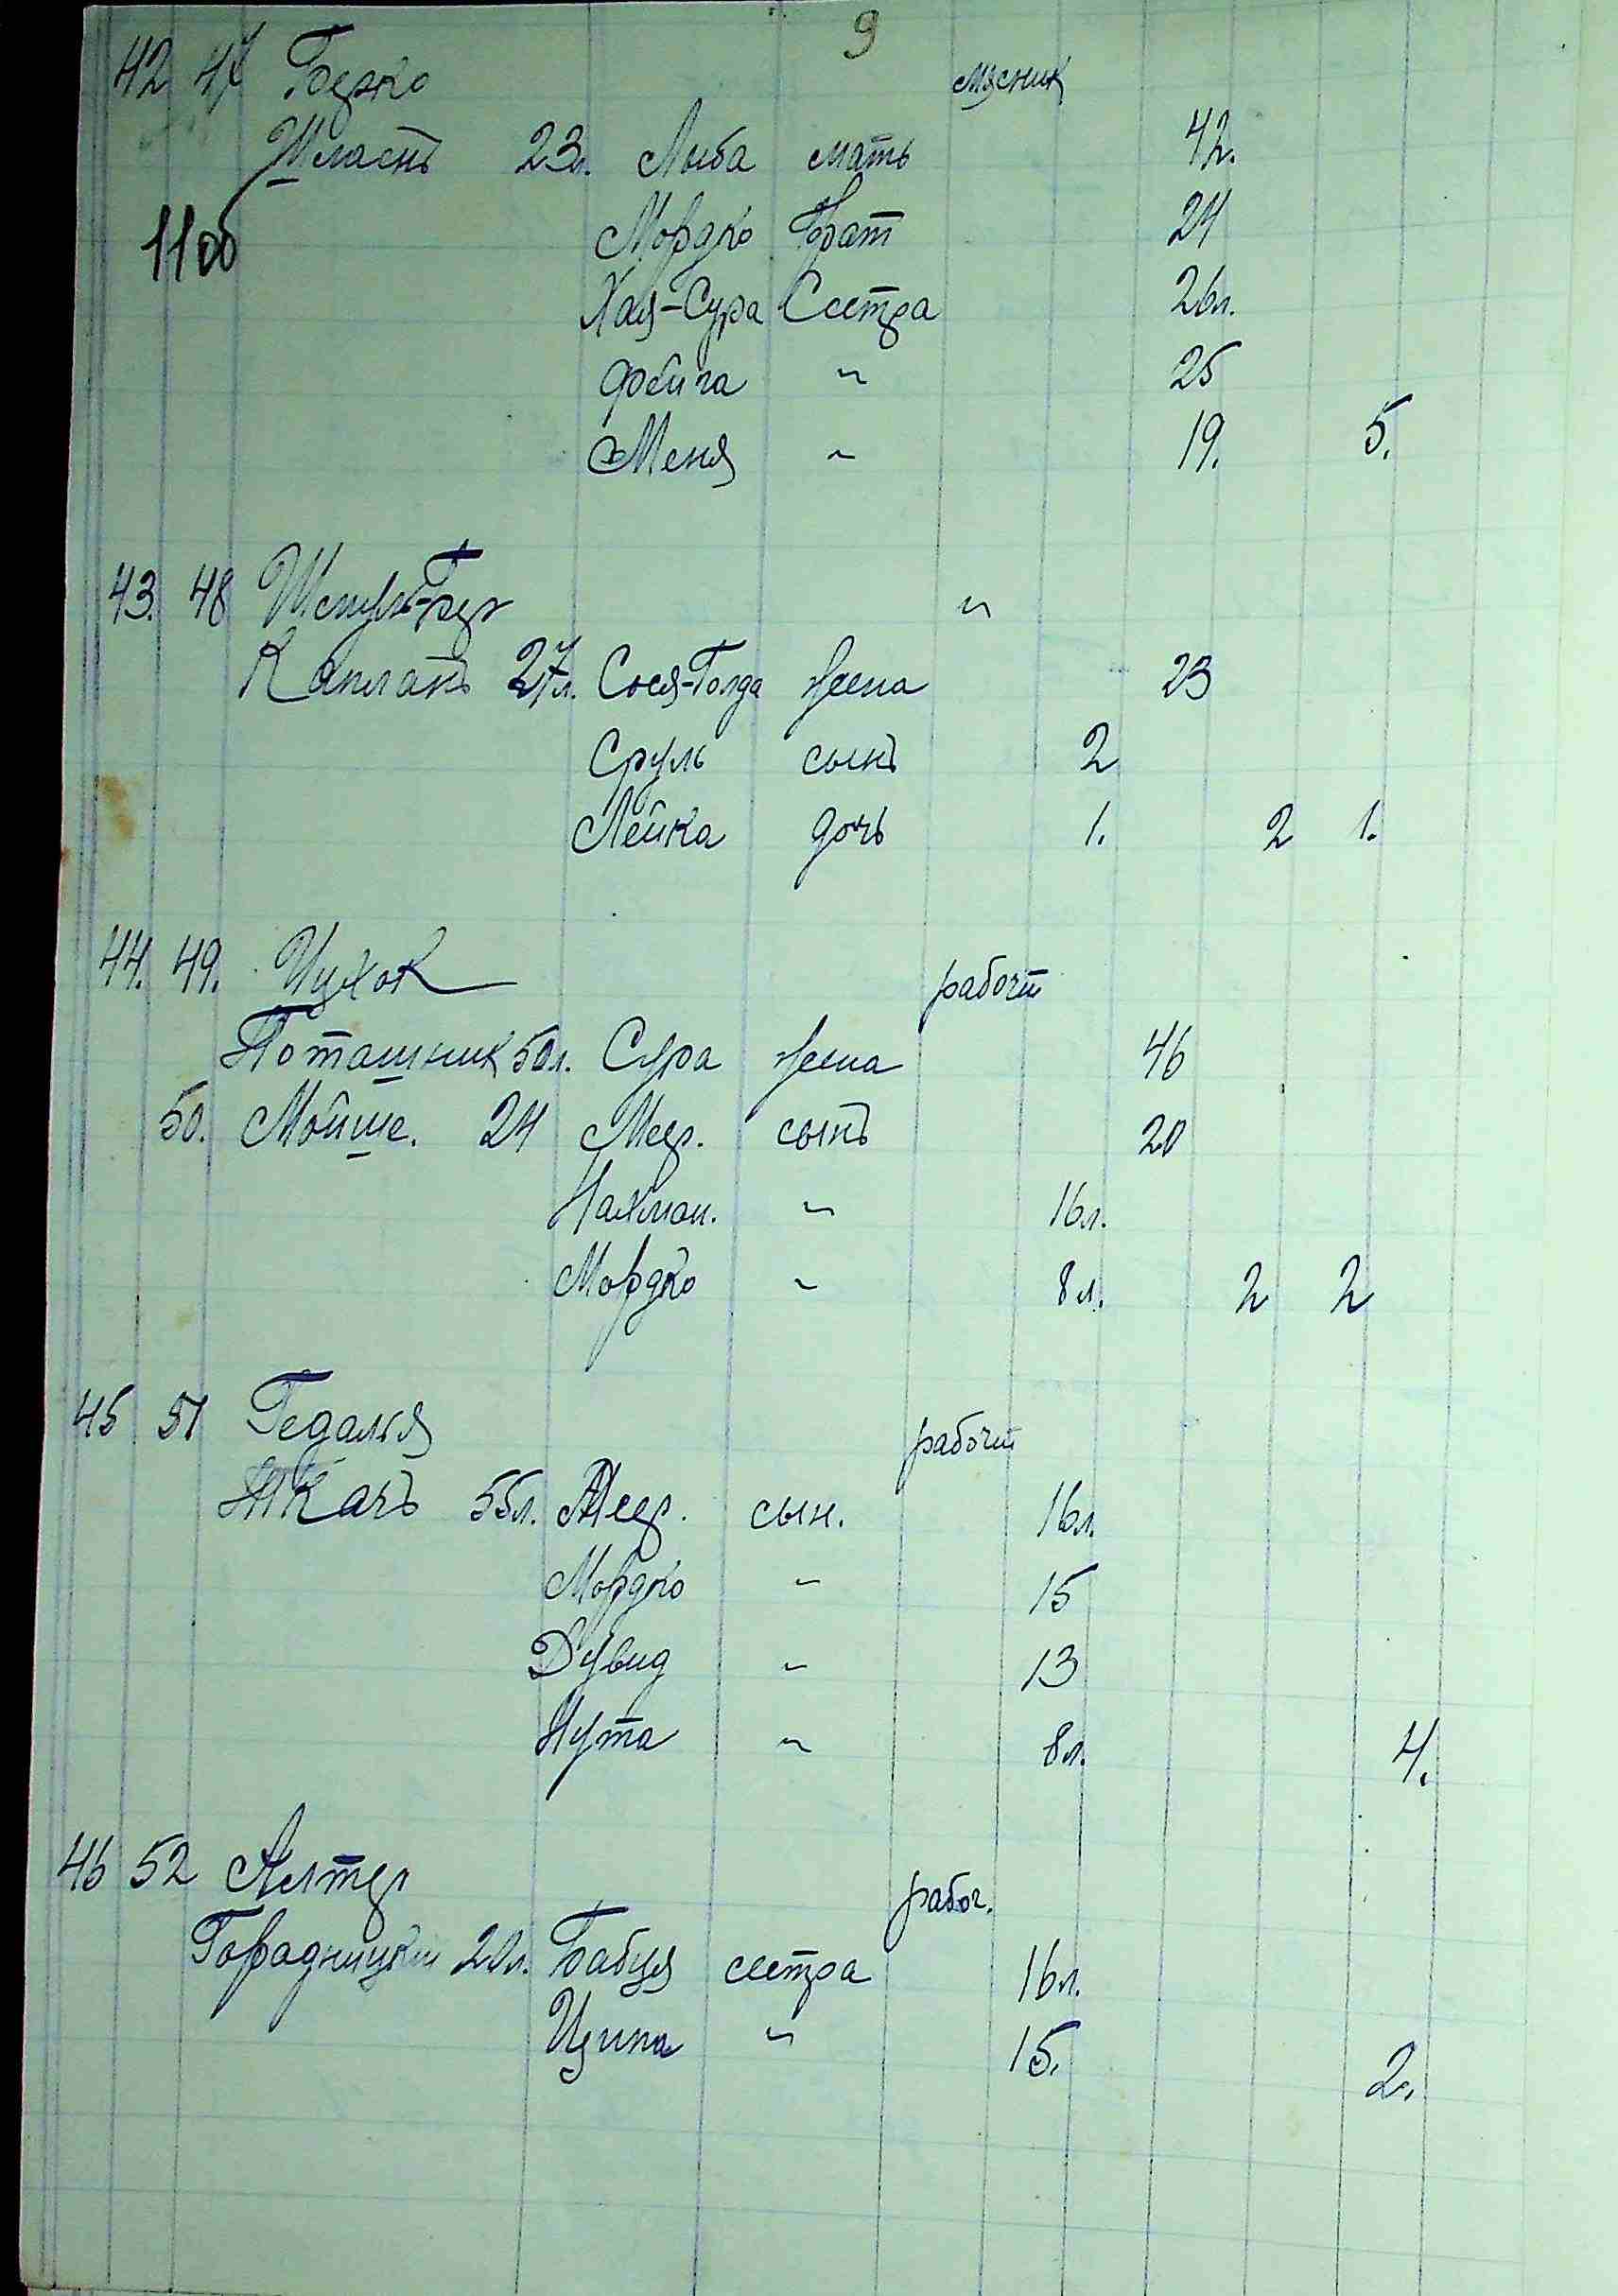 9
42 47 Берко мясник
Шласнъ 23л. Лыба мать 42.
11об
Мордко брат 24
Хая-Сура Сестра 26л.
Фейга " 25
Меня " 19. 5.
43. 48 Шмуль-Бер "
Капланъ 27л. Сося-Голда жена 23
Сруль сынъ 2
Лейка дочь 1. 2 1.
44. 49. Ицхок рабочий
Поташник 50л. Сура жена 46
50. Мойше. 24 Меер. сынъ 20
Нахман. " 16л.
Мордко " 8л. 2 2
45 51 Гедалья рабочий
Ткачъ 55л. Меер. сын. 16л.
Мордко " 15
Дувид " 13
Нута " 8л. 4.
46 52 Алтер рабоч.
Горадницкий 20л. Бабця сестра 16л.
Ципа " 15. 2.